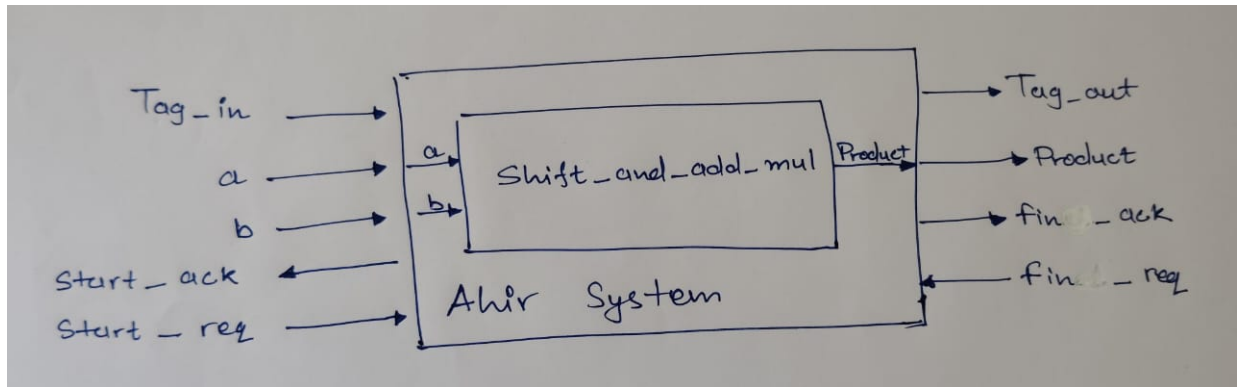 Tag_in
a
b
Start_ack
Start_req
a
b
Shift_and_add_mul
Product
Ahir System
Tag_out
Product
fin _ack
fin _req